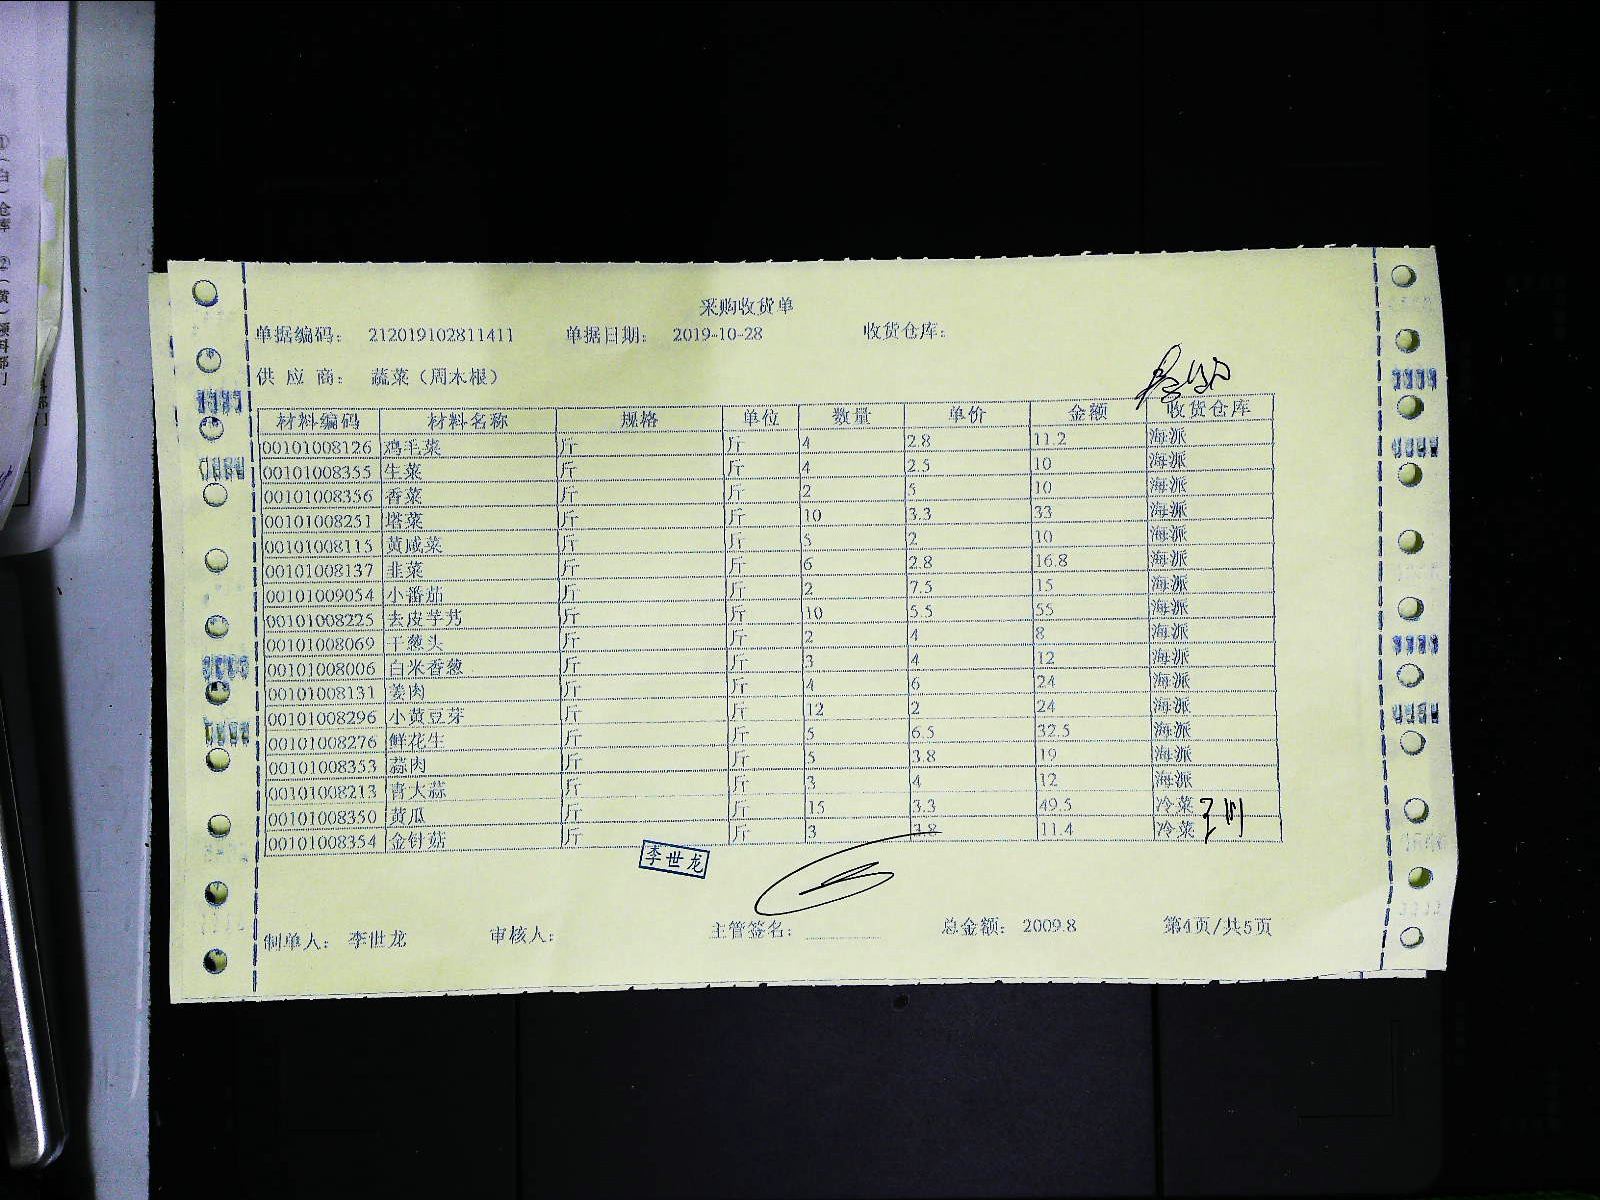 采购收货单
单据编码： 212019102811411 单据日期： 2019-10-28 收货仓库：
供 应 商： 蔬菜（周木根）
材料编码 材料名称 规格 单位 数量 单价 金额 收货仓库
00101008126 鸡毛菜 斤 斤 4 2.8 11.2 海派
00101008355 生菜 斤 斤 4 2.5 10 海派
00101008356 香菜 斤 斤 2 5 10 海派
00101008251 塔菜 斤 斤 10 3.3 33 海派
00101008115 黄咸菜 斤 斤 5 2 10 海派
00101008137 韭菜 斤 斤 6 2.8 16.8 海派
00101009054 小番茄 斤 斤 2 7.5 15 海派
00101008225 去皮芋艿 斤 斤 10 5.5 55 海派
00101008069 干葱头 斤 斤 2 4 8 海派
00101008006 白米香葱 斤 斤 3 4 12 海派
00101008131 姜肉 斤 斤 4 6 24 海派
00101008296 小黄豆芽 斤 斤 12 2 24 海派
00101008276 鲜花生 斤 斤 5 6.5 32.5 海派
00101008353 蒜肉 斤 斤 5 3.8 19 海派
00101008213 青大蒜 斤 斤 3 4 12 海派
00101008350 黄瓜 斤 斤 15 3.3 49.5 冷菜
00101008354 金针菇 斤 斤 3 3.8 11.4 冷菜
李世龙
制单人： 李世龙 审核人： 主管签名： 总金额： 2009.8 第4页/共5页